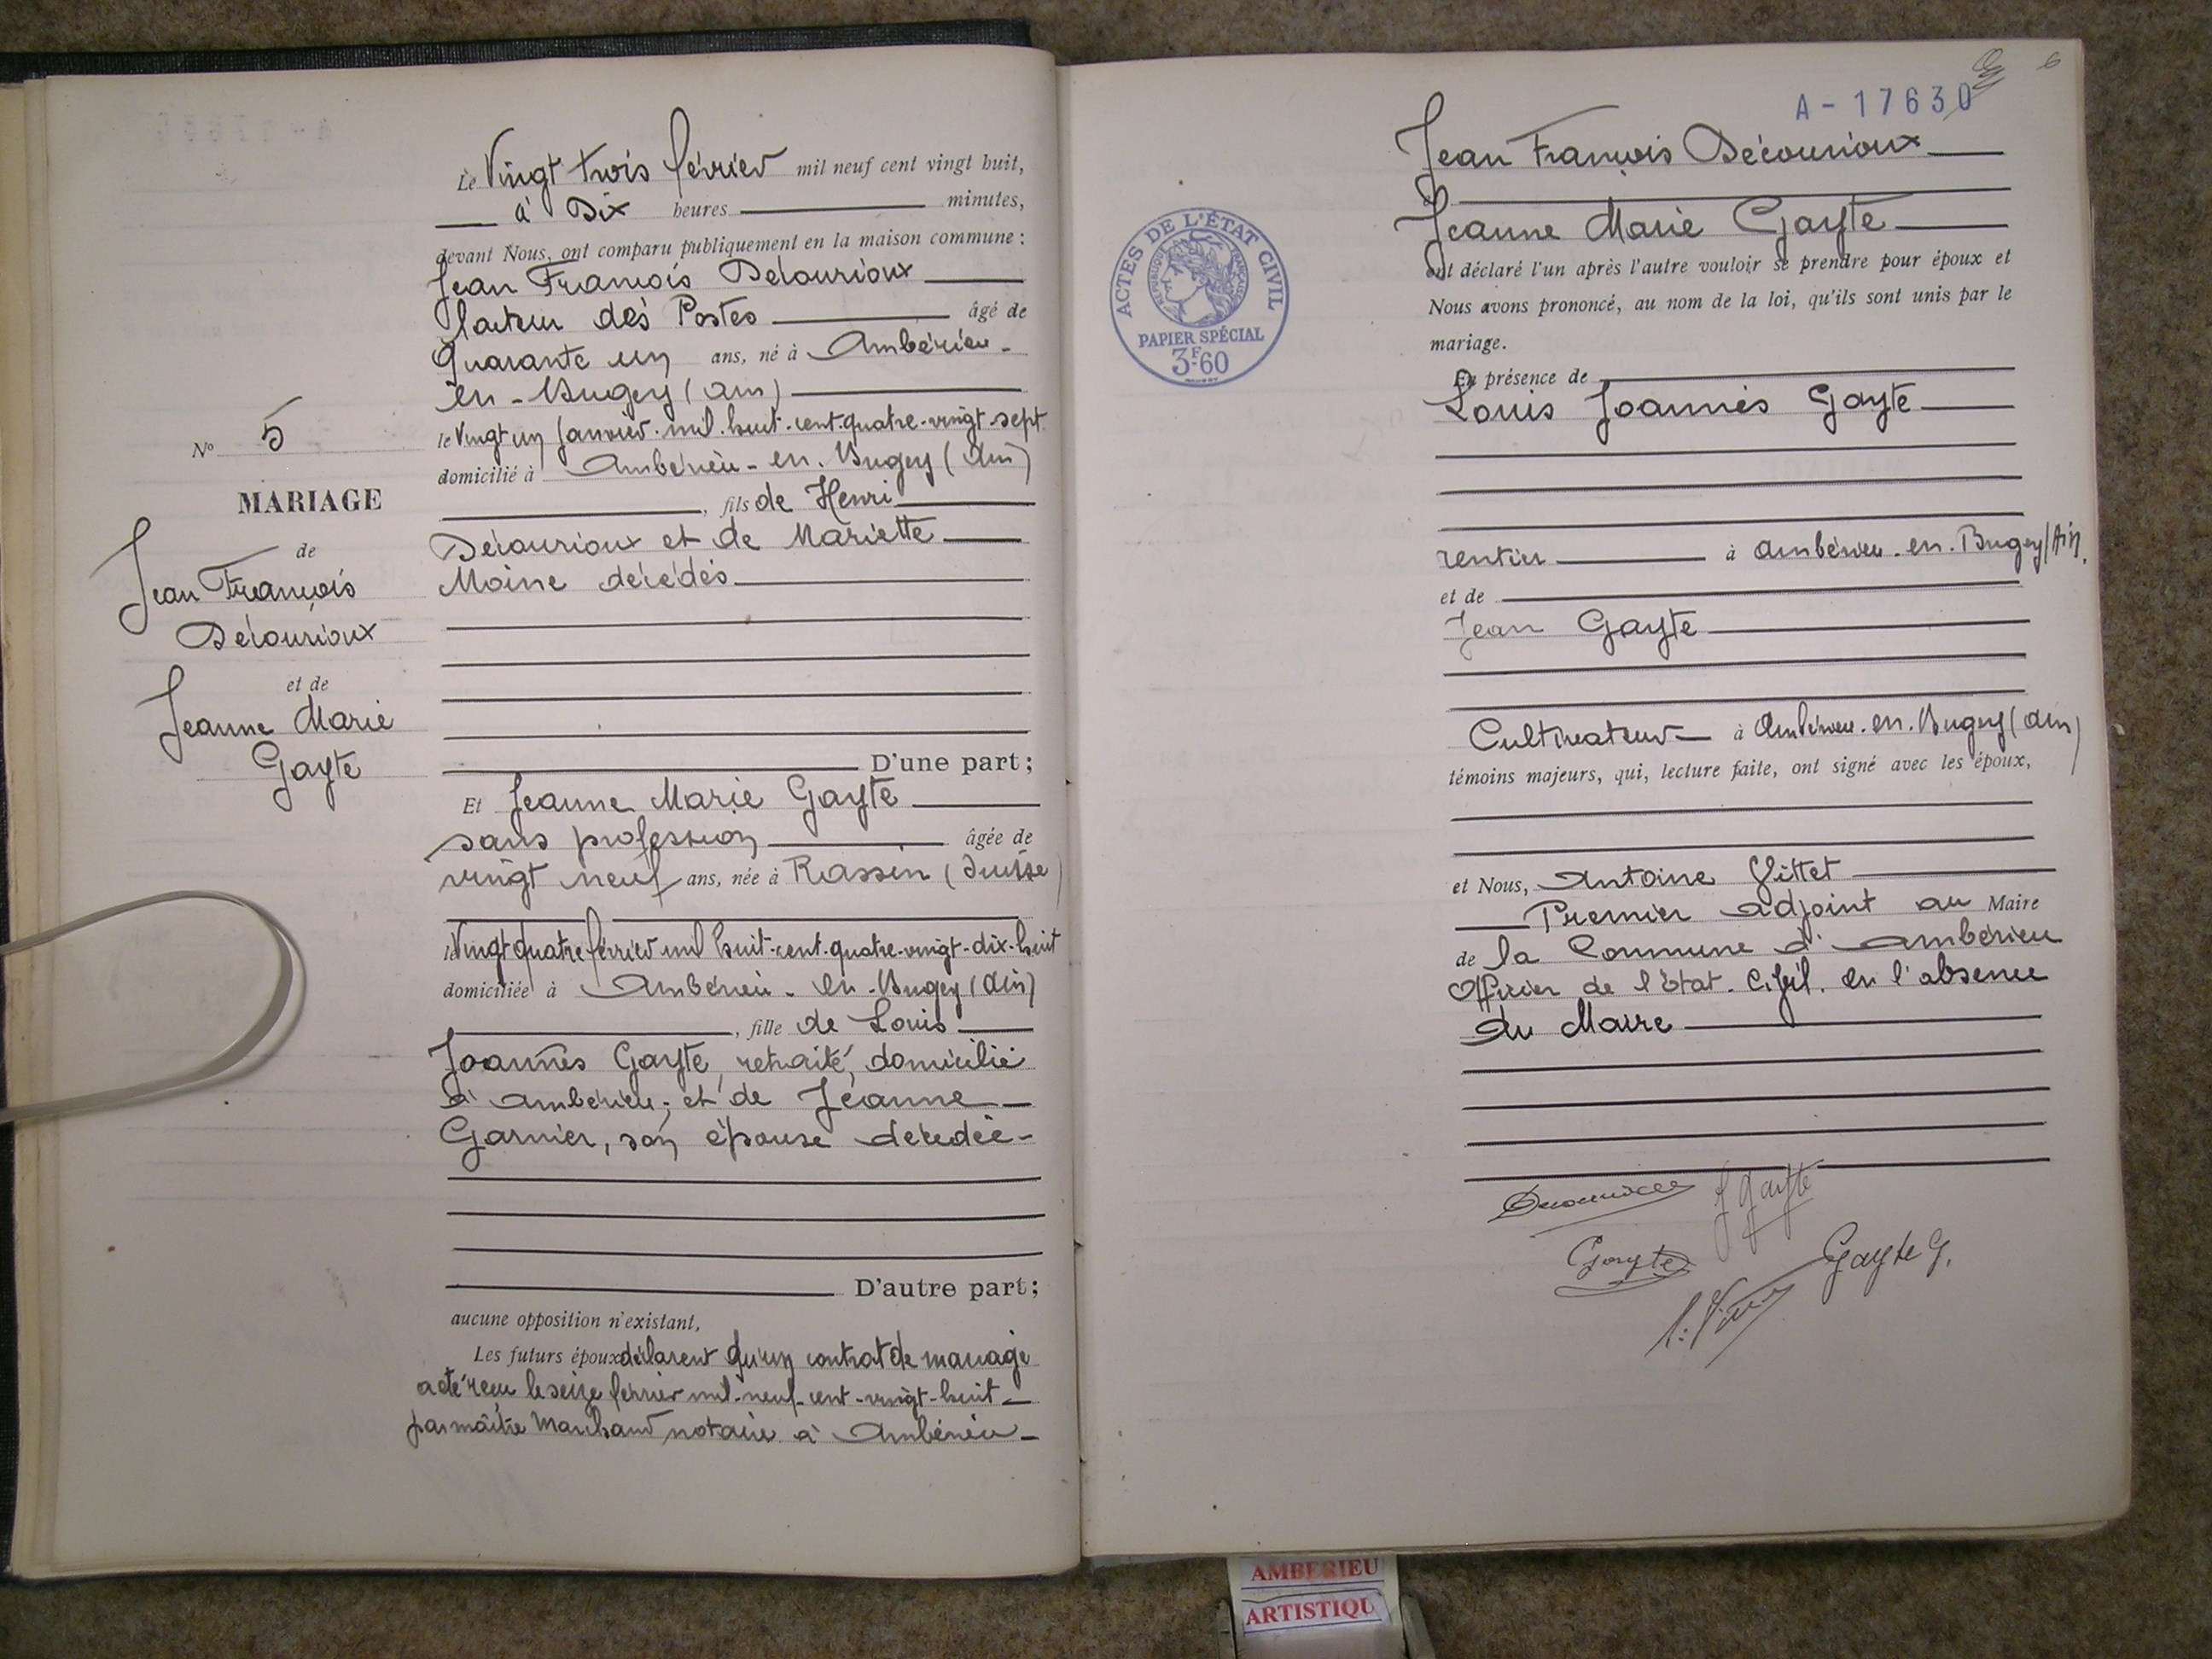 Le Vingt trois février mil neuf cent vingt huit,
à Dix heures minutes,
devant Nous, ont comparu publiquement en la maison commune :
Jean François Décourioux
facteur des Postes âgé de
Quarante un ans, né à Ambérieu-
en-Bugey (Ain)
le Vingt un Janvier mil huit-cent-quatre-vingt-sept
domicilié à Ambérieu-en-Bugey (Ain)
, fils de Henri
Décourioux et de Mariette
Moine décédés
D'une part ;
Et Jeanne Marie Gayte
sans profession âgée de
vingt neuf ans, née à Rassin (Suisse)
le Vingt quatre février mil huit-cent-quatre-vingt-dix-huit
domiciliée à Ambérieu-en-Bugey (Ain)
, fille de Louis
Joannès Gayte, retraité, domicilié
à Ambérieu, et de Jeanne
Garnier, son épouse décédée-
D'autre part ;
aucune opposition n'existant,
Les futurs époux déclarent qu'un contrat de mariage
a été reçu le seize février mil-neuf-cent-vingt-huit
par maître Marchand notaire à Ambérieu
N° 5
MARIAGE
de
Jean François
Décourioux
et de
Jeanne Marie
Gayte
6
A-17630
Jean François Décourioux
Jeanne Marie Gayte
ont déclaré l'un après l'autre vouloir se prendre pour époux et
Nous avons prononcé, au nom de la loi, qu'ils sont unis par le
mariage.
En présence de
Louis Joannès Gayte
rentier à Ambérieu-en-Bugey (Ain)
et de
Jean Gayte
Cultivateur à Ambérieu-en-Bugey (Ain)
témoins majeurs, qui, lecture faite, ont signé avec les époux,
et Nous, Antoine Vittet
Premier adjoint au Maire
de la Commune d'Ambérieu
Officier de l'état-Civil en l'absence
du Maire
J Gayte
Gayte
Gayte G.
ACTES DE L'ÉTAT CIVIL
RÉPUBLIQUE FRANÇAISE
PAPIER SPÉCIAL
3F60
AMBERIEU
ARTISTIQU